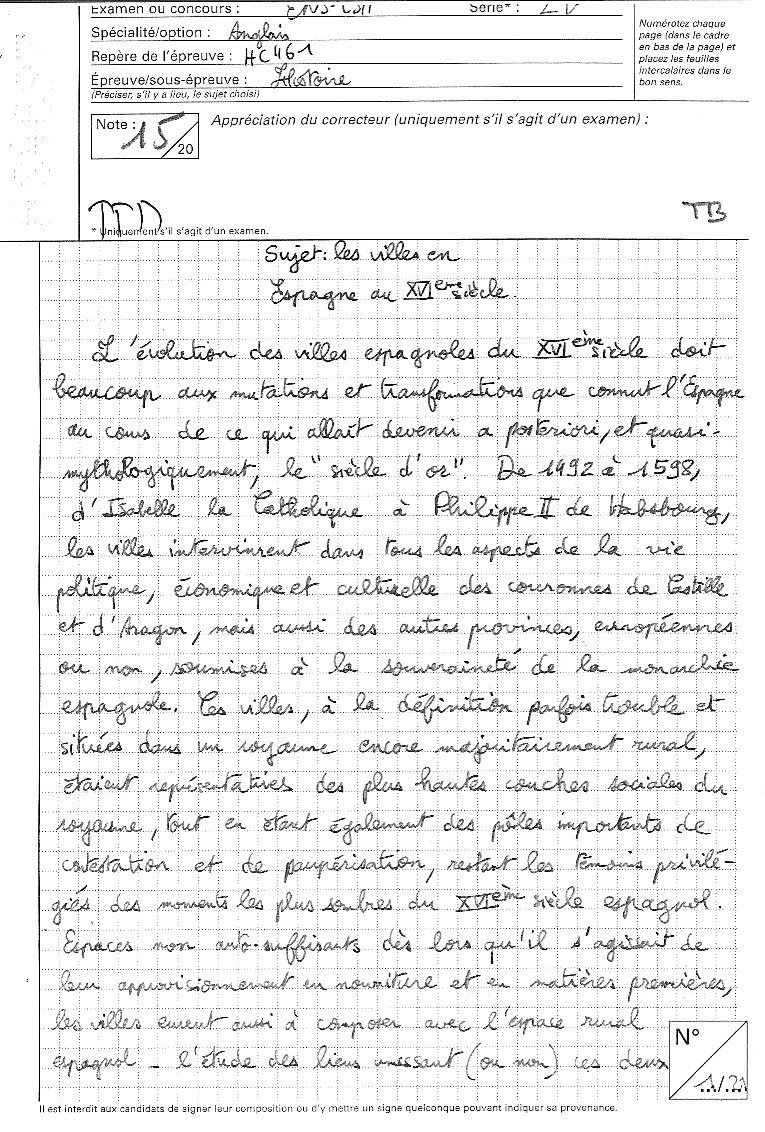 Examen ou concours : Série* :
Spécialité/option : Anglais
Repère de l'épreuve : HC461
Épreuve/sous-épreuve : Histoire
(Préciser, s'il y a lieu, le sujet choisi)
Numérotez chaque
page (dans le cadre
en bas de la page) et
placez les feuilles
intercalaires dans le
bon sens.
Note : 15/20
Appréciation du correcteur (uniquement s'il s'agit d'un examen) :
TB
* Uniquement s'il s'agit d'un examen.
Sujet : les villes en
Espagne au XVIème siècle.
L'évolution des villes espagnoles du XVIème siècle doit
beaucoup aux mutations et transformations que connut l'Espagne
au cours de ce qui allait devenir a posteriori, et quasi-
mythologiquement, le "siècle d'or". De 1492 à 1598,
d'Isabelle la Catholique à Philippe II de Habsbourg,
les villes intervinrent dans tous les aspects de la vie
politique, économique et culturelle des couronnes de Castille
et d'Aragon, mais aussi des autres provinces, européennes
ou non, soumises à la souveraineté de la monarchie
espagnole. Ces villes, à la définition parfois trouble et
situées dans un royaume encore majoritairement rural,
étaient représentatives des plus hautes couches sociales du
royaume, tout en étant également des pôles importants de
contestation et de paupérisation, restant les témoins privilé-
giés des moments les plus sombres du XVIème siècle espagnol.
Espaces non auto-suffisants dès lors qu'il s'agissait de
leur approvisionnement en nourriture et en matières premières,
les villes eurent aussi à composer avec l'espace rural
espagnol - l'étude des liens unissant (ou non) ces deux
N°
1/21
Il est interdit aux candidats de signer leur composition ou d'y mettre un signe quelconque pouvant indiquer sa provenance.